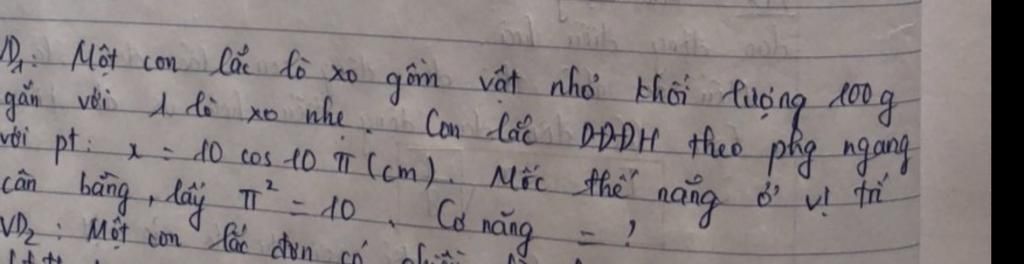 VD1: Một con lắc lò xo gồm vật nhỏ khối lượng 100g
gắn với 1 lò xo nhẹ. Con lắc DĐĐH theo phg ngang
với pt: x = 10 cos 10 π (cm). Mốc thế năng ở vị trí
cân bằng, lấy π² = 10. Cơ năng = ?
VD2: Một con lắc đơn có